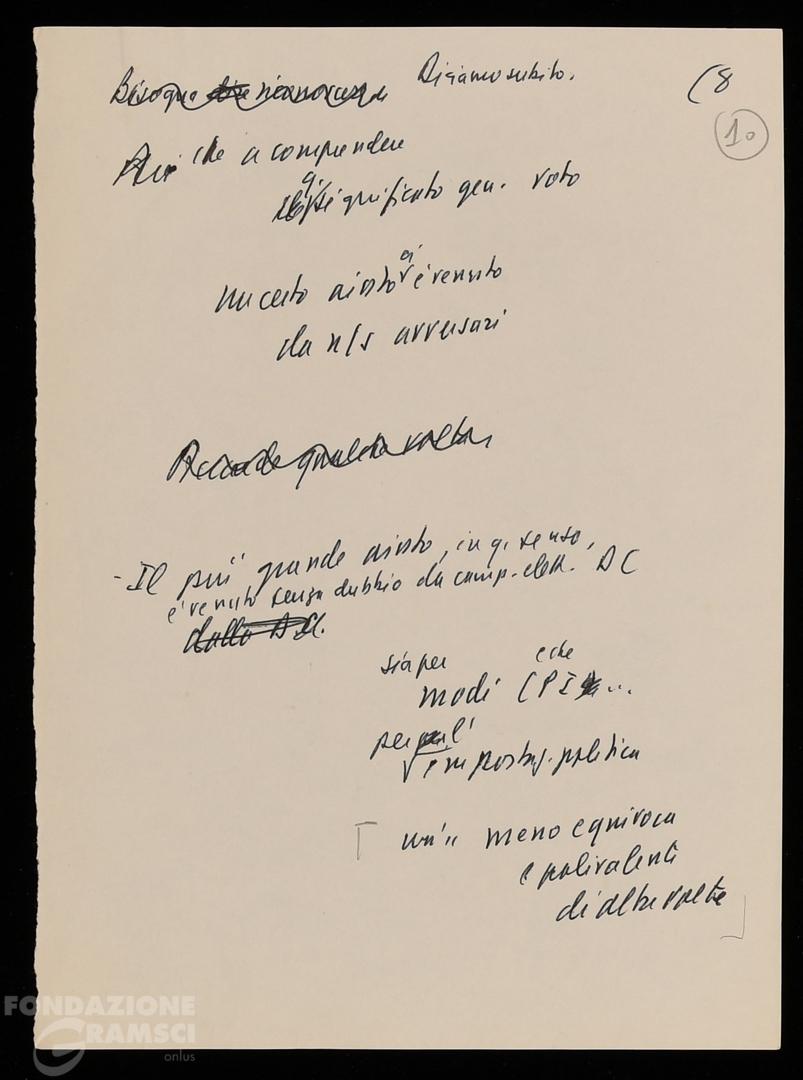 Bisogna riconoscere Diciamo subito. (8
10
Più che a comprendere
significato gen. voto
un certo aiuto ci è venuto
da n/s avversari
Accade qualche volta,
- Il più grande aiuto, in q. senso,
è venuto senza dubbio da camp. elett. DC
dalla DC.
sia per e che
modi CPI ...
per l'
impostaz. politica
un'" meno equivoca
e polivalente
di altre volte
FONDAZIONE
GRAMSCI
onlus